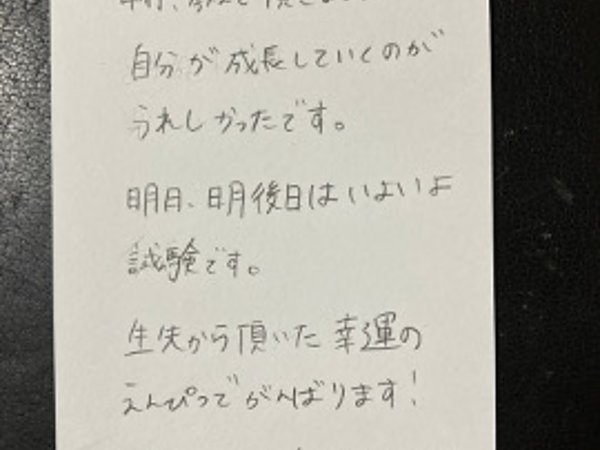 自分が成長していくのが
うれしかったです。
明日、明後日はいよいよ
試験です。
先生から頂いた幸運の
えんぴつでがんばります!